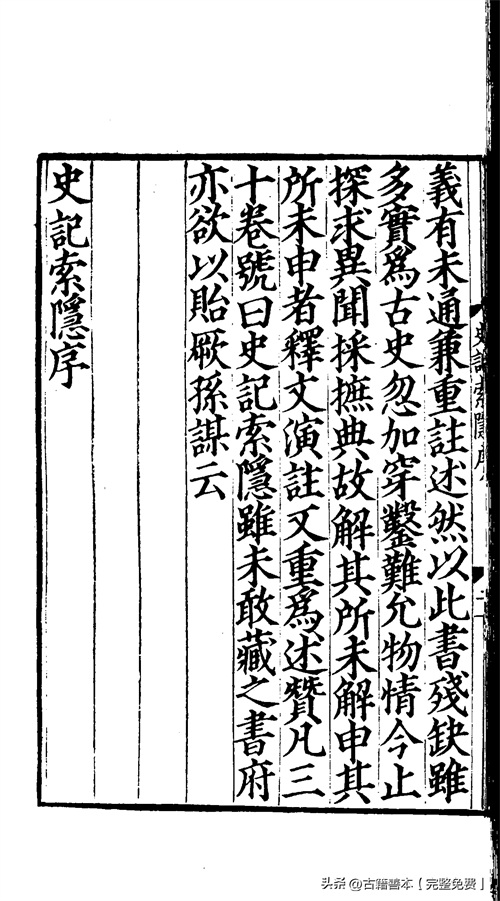 義有未通兼重註述然以此書殘缺雖
多實爲古史忽加穿鑿難允物情今止
探求異聞採摭典故解其所未解申其
所未申者釋文演註又重爲述贊凡三
十卷號曰史記索隱雖未敢藏之書府
亦欲以貽厥孫謀云
史記索隱序
史記索隱序
二
头条@古籍善本【完整免费】